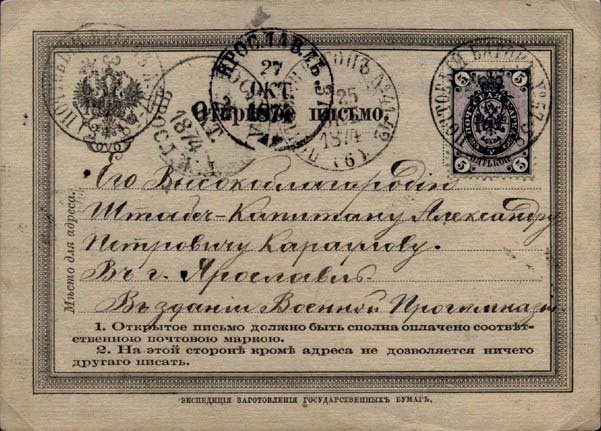 ЯРОСЛАВЛЬ
27
ОКТ.
1874
25
1874
(6)
ПОЧТОВЫЙ ВАГОНЪ № 57
5 5
5 5
Открытое письмо.
Мѣсто для адреса:
Его Высокоблагородію
Штабсъ-Капитану Александру
Петровичу Караулову.
Въ г. Ярославль
Въ зданіи Военной Прогимназіи
1. Открытое письмо должно быть сполна оплачено соотвѣт-
ственною почтовою маркою.
2. На этой сторонѣ кромѣ адреса не дозволяется ничего
другаго писать.
ЭКСПЕДИЦІЯ ЗАГОТОВЛЕНІЯ ГОСУДАРСТВЕННЫХЪ БУМАГЪ.